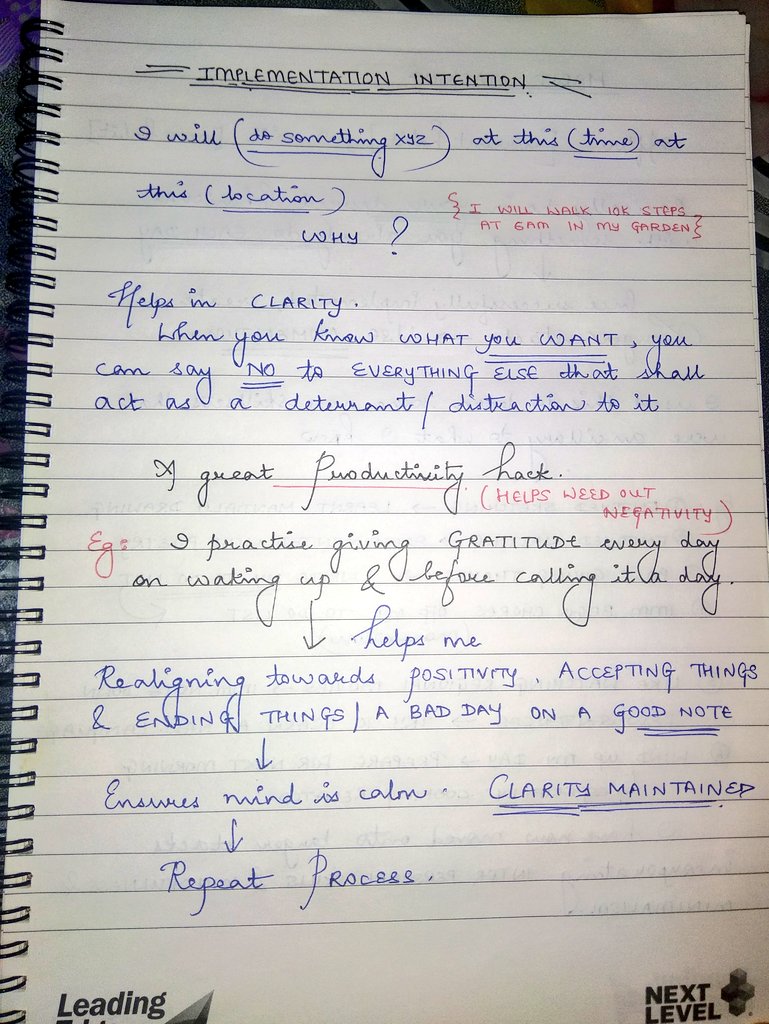 IMPLEMENTATION INTENTION
I will (do something XYZ) at this (time) at
this (location)
{ I WILL WALK 10K STEPS
AT 6AM IN MY GARDEN }
WHY ?
Helps in CLARITY.
When you know WHAT you WANT, you
can say NO to EVERYTHING ELSE that shall
act as a deterrant / distraction to it
A great Productivity hack.
(HELPS WEED OUT
NEGATIVITY)
Eg: I practise giving GRATITUDE every day
on waking up & before calling it a day.
↓ helps me
Realigning towards POSITIVITY. ACCEPTING THINGS
& ENDING THINGS / A BAD DAY ON A GOOD NOTE
↓
Ensures mind is calm. CLARITY MAINTAINED
↓
Repeat PROCESS.
Leading
NEXT
LEVEL